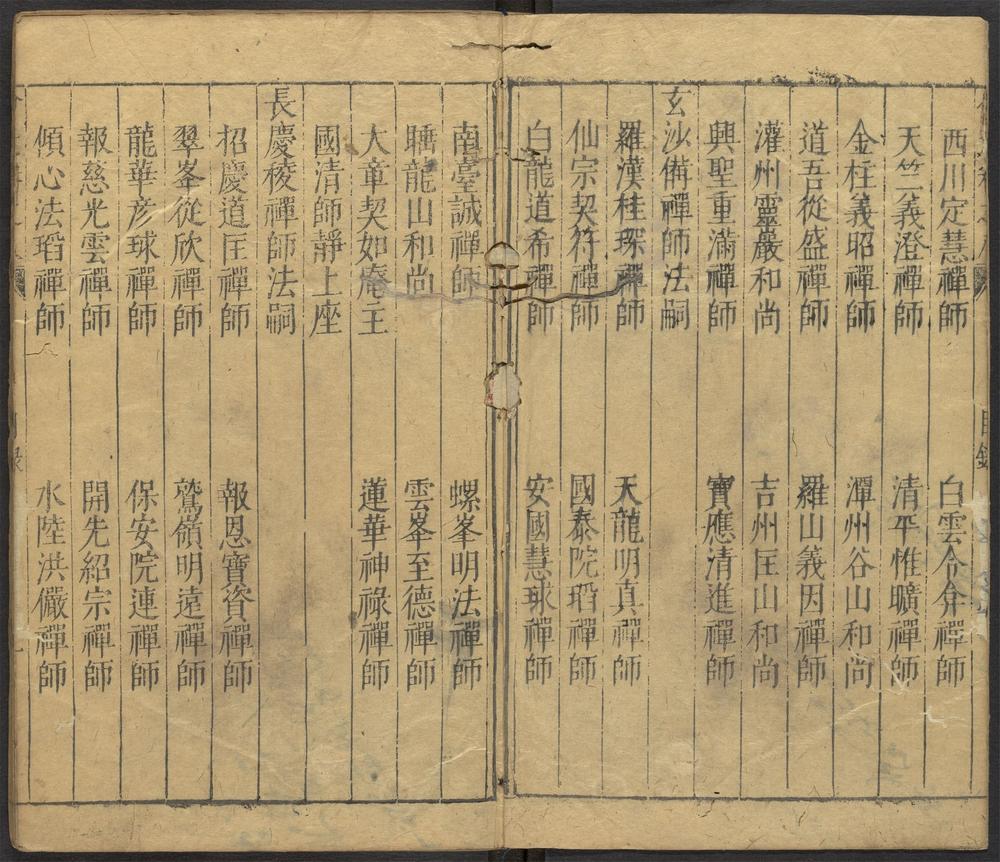 西川定慧禪師　白雲令弇禪師
天竺義澄禪師　清平惟曠禪師
金柱義昭禪師　潭州谷山和尚
道吾從盛禪師　羅山義因禪師
灌州靈巖和尚　吉州匡山和尚
興聖重滿禪師　寶應清進禪師
玄沙備禪師法嗣
羅漢桂琛禪師　天龍明真禪師
仙宗契符禪師　國泰院瑫禪師
白龍道希禪師　安國慧球禪師
南臺誠禪師　螺峯明法禪師
龍山和尚　雲峯至德禪師
大章契如庵主　蓮華神祿禪師
國清師靜上座
長慶稜禪師法嗣
招慶道匡禪師　報恩寶資禪師
翠峯從欣禪師　鷲嶺明遠禪師
龍華彥球禪師　保安院連禪師
報慈光雲禪師　開先紹宗禪師
傾心法瑫禪師　水陸洪儼禪師
目錄